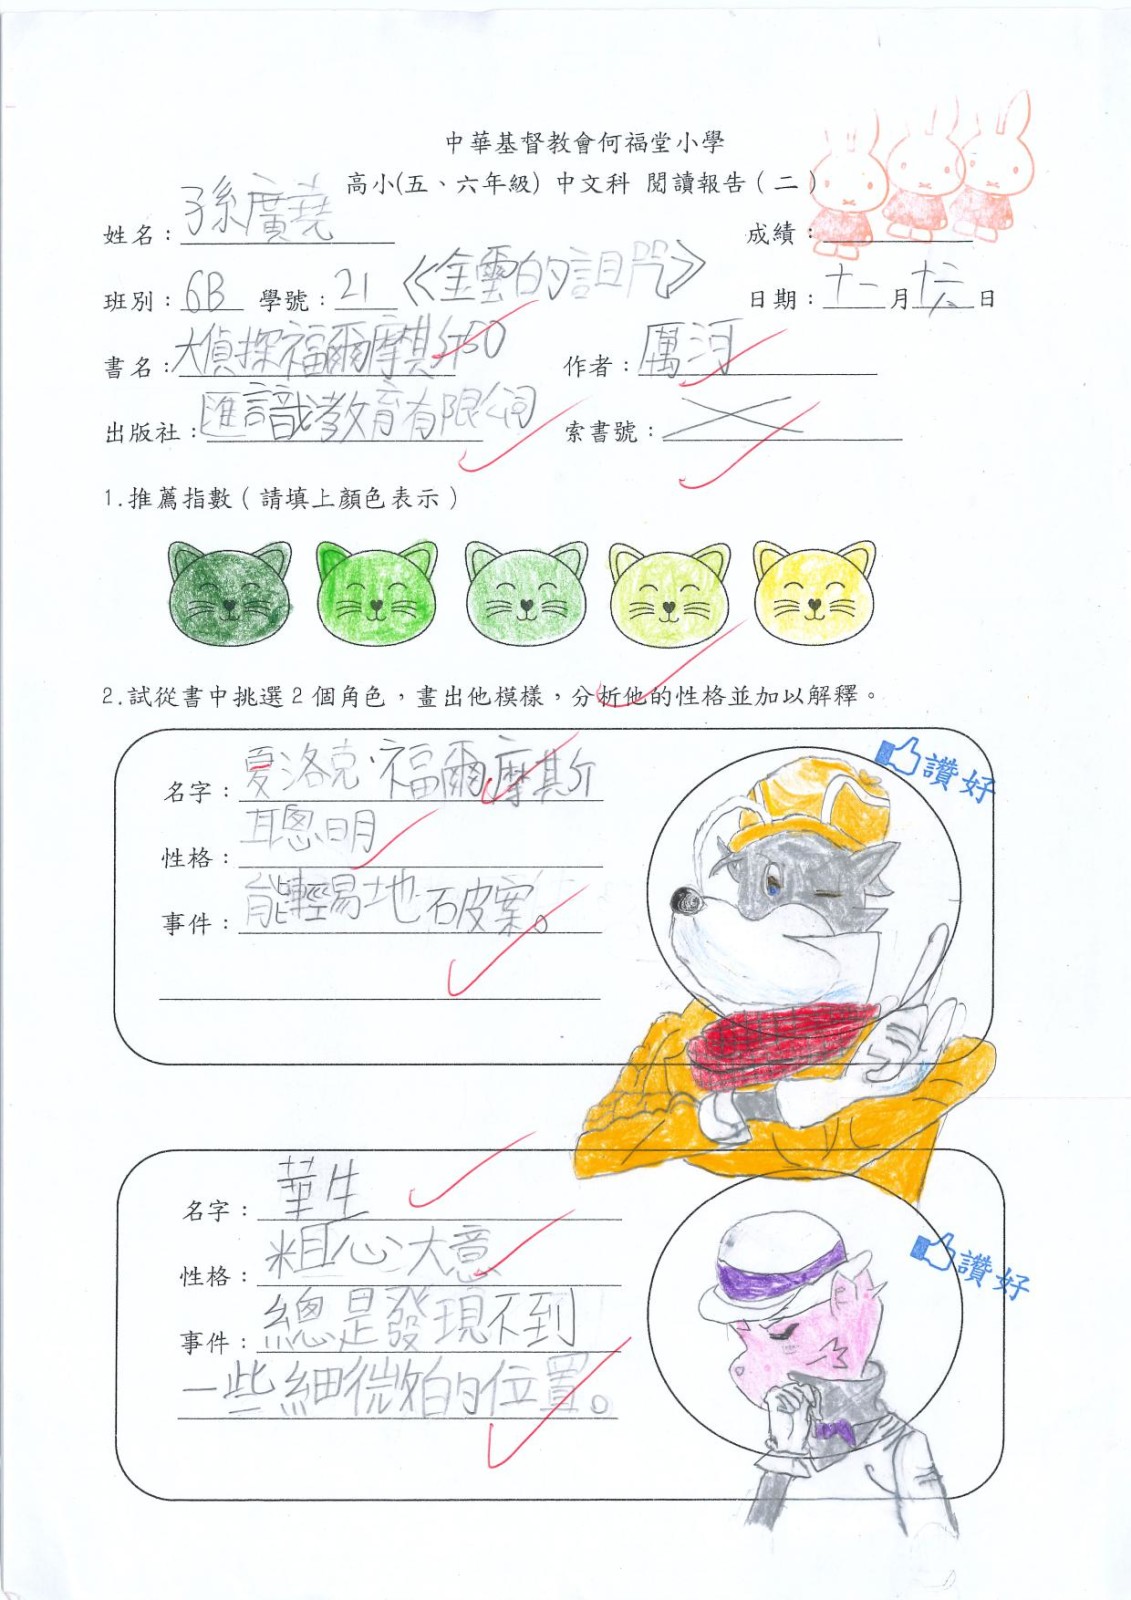 中華基督教會何福堂小學
高小(五、六年級) 中文科 閱讀報告(二)
姓名：孫廣堯
成績：
班別：6B 學號：21 《金雲的詛咒》
日期：十一月十六日
書名：大偵探福爾摩斯50
作者：厲河
出版社：匯識教育有限公司
索書號：
1.推薦指數(請填上顏色表示)
2.試從書中挑選2個角色，畫出他模樣，分析他的性格並加以解釋。
名字：夏洛克·福爾摩斯
讚好
性格：聰明
事件：能輕易地破案。
名字：華生
性格：粗心大意
讚好
事件：總是發現不到
一些細微的位置。